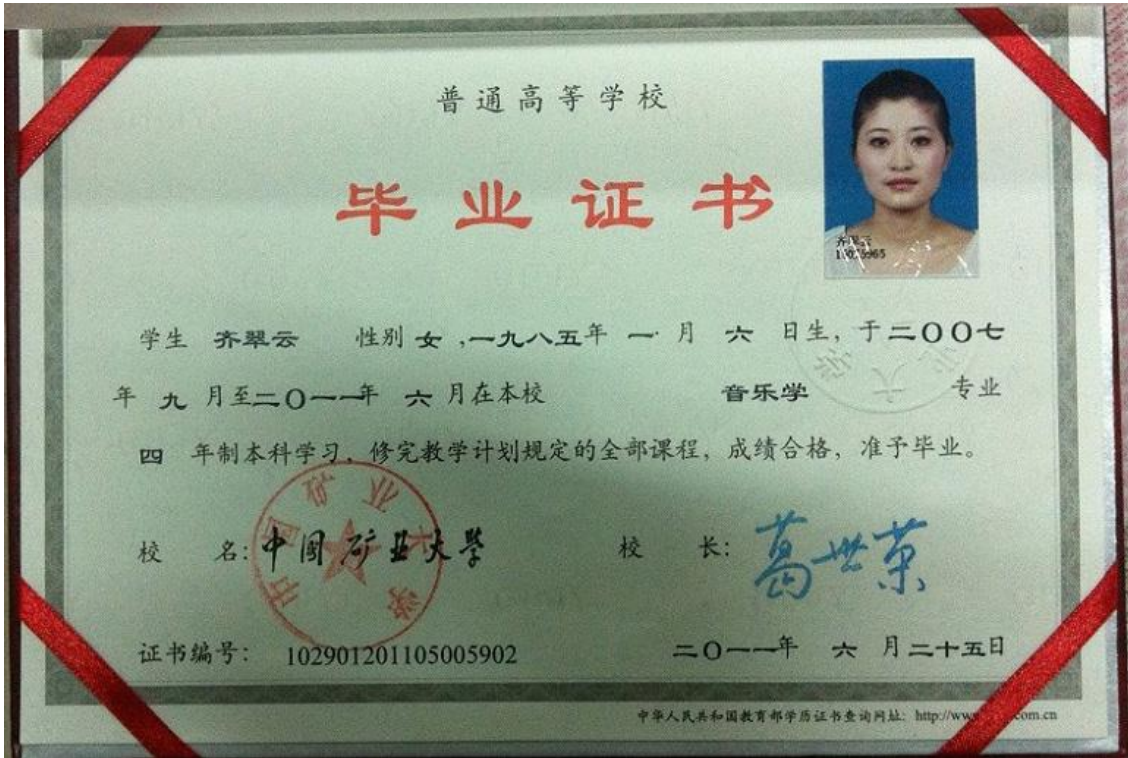 普通高等学校
毕业证书
齐翠云
学生 齐翠云 性别 女,一九八五年 一 月 六 日生,于二〇〇七
年 九 月至二〇一一年 六 月在本校 音乐学 专业
四 年制本科学习、修完教学计划规定的全部课程,成绩合格,准予毕业。
中国矿业大学
校 名:中国矿业大学 校 长:葛世荣
证书编号: 102901201105005902 二〇一一年 六 月二十五日
中华人民共和国教育部学历证书查询网址: http://www com.cn